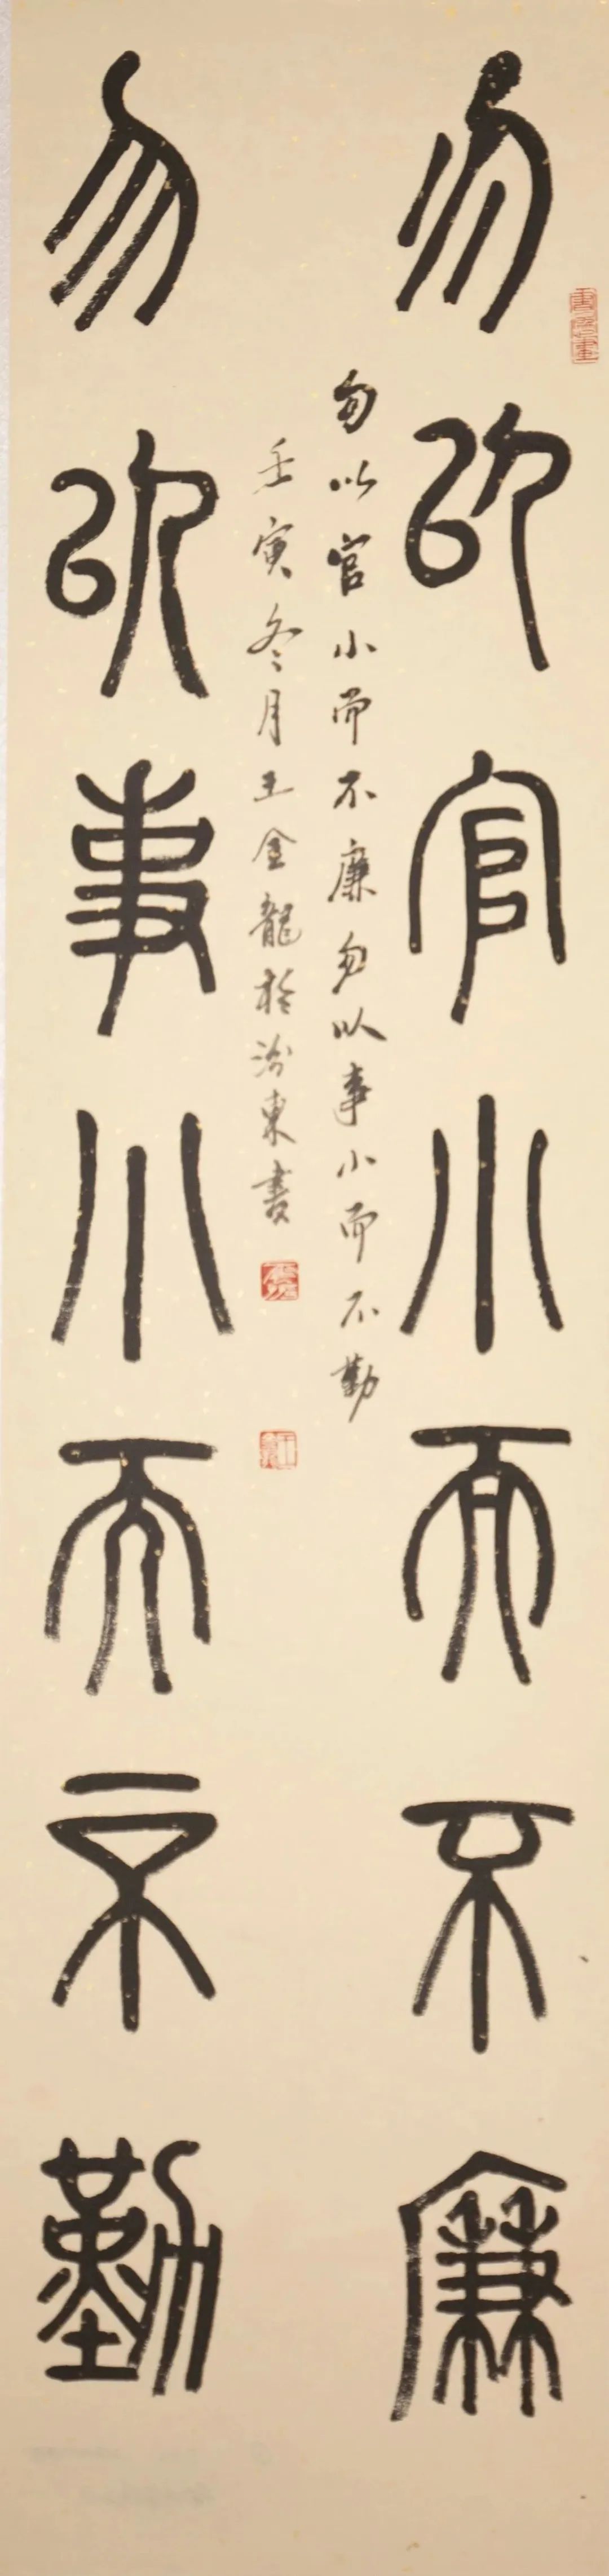 勿以官小而不廉
勿以事小而不勤
勿以官小而不廉勿以事小而不勤
壬寅冬月王金龍於汾東書